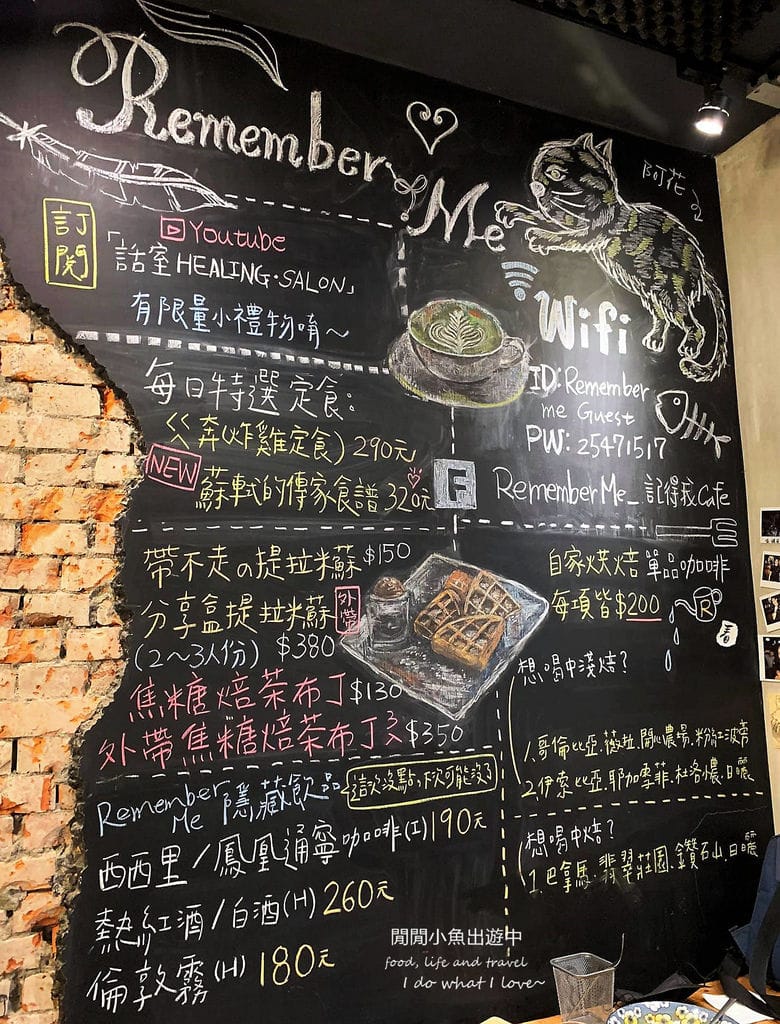 Remember Me
阿花
訂閱
Youtube
「話室 HEALING·SALON」
有限量小禮物唷～
Wifi
ID: Remember
me Guest
PW: 25471517
RememberMe_記得我Cafe
每日特選定食:
ㄍ奔(炸雞定食) 290元
NEW
蘇軾的傳家食譜 320元
帶不走の提拉米蘇 $150
分享盒提拉米蘇 外帶
(2～3人份) $380
焦糖焙茶布丁 $130
外帶焦糖焙茶布丁 $350
自家烘焙 單品咖啡
每項皆$200
想喝中淺焙?
1.哥倫比亞.薇拉.開心農場.粉紅波旁
2.伊索比亞.耶加雪菲.杜洛儂.日曬
想喝中焙?
1.巴拿馬.翡翠莊園.鑽石山.日曬
Remember Me 隱藏飲品
這次沒點,下次可能沒了
西西里/鳳凰通寧咖啡(I) 190元
熱紅酒/白酒(H) 260元
倫敦霧(H) 180元
閒閒小魚出遊中
food, life and travel
I do what I love~